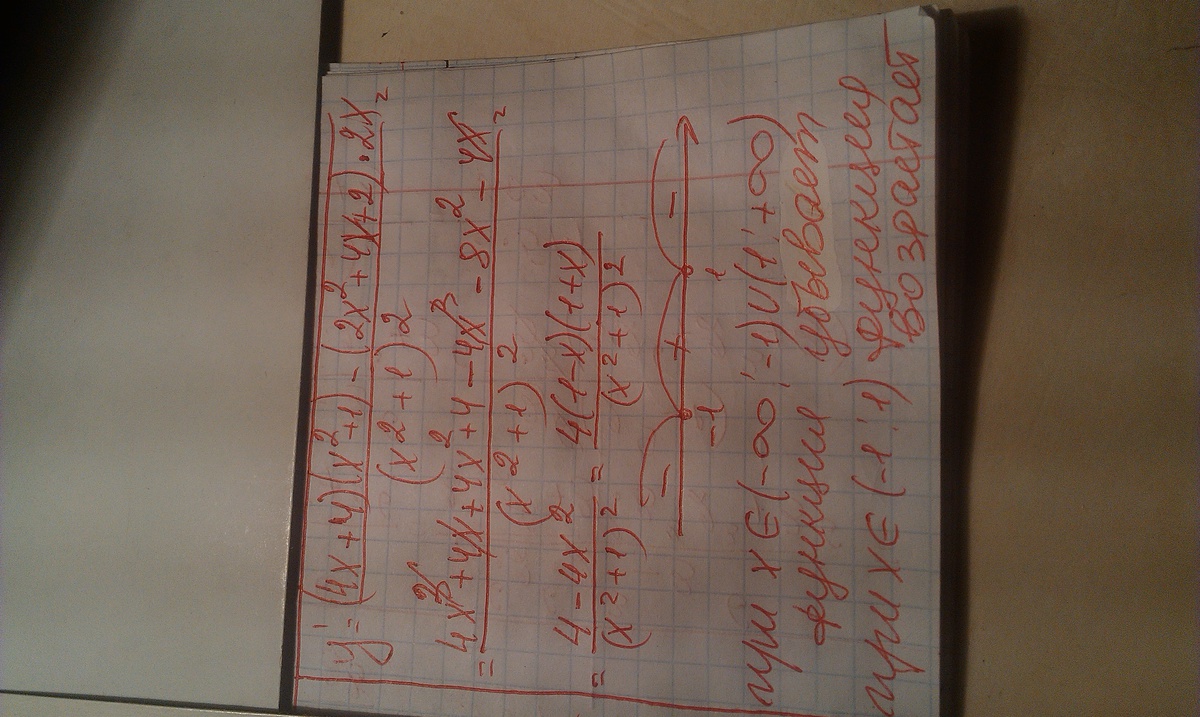 y' = (4x+4)(x²+1) - (2x²+4x+2)·2x =
(x²+1)²
= 4x³+4x+4x²+4-4x³-8x²-4x =
(x²+1)²
= 4-4x² = 4(1-x)(1+x)
(x²+1)² (x²+1)²
- + -
-1 1
при x∈(-∞;-1)∪(1;+∞)
функция убывает
при x∈(-1;1) функция
возрастает